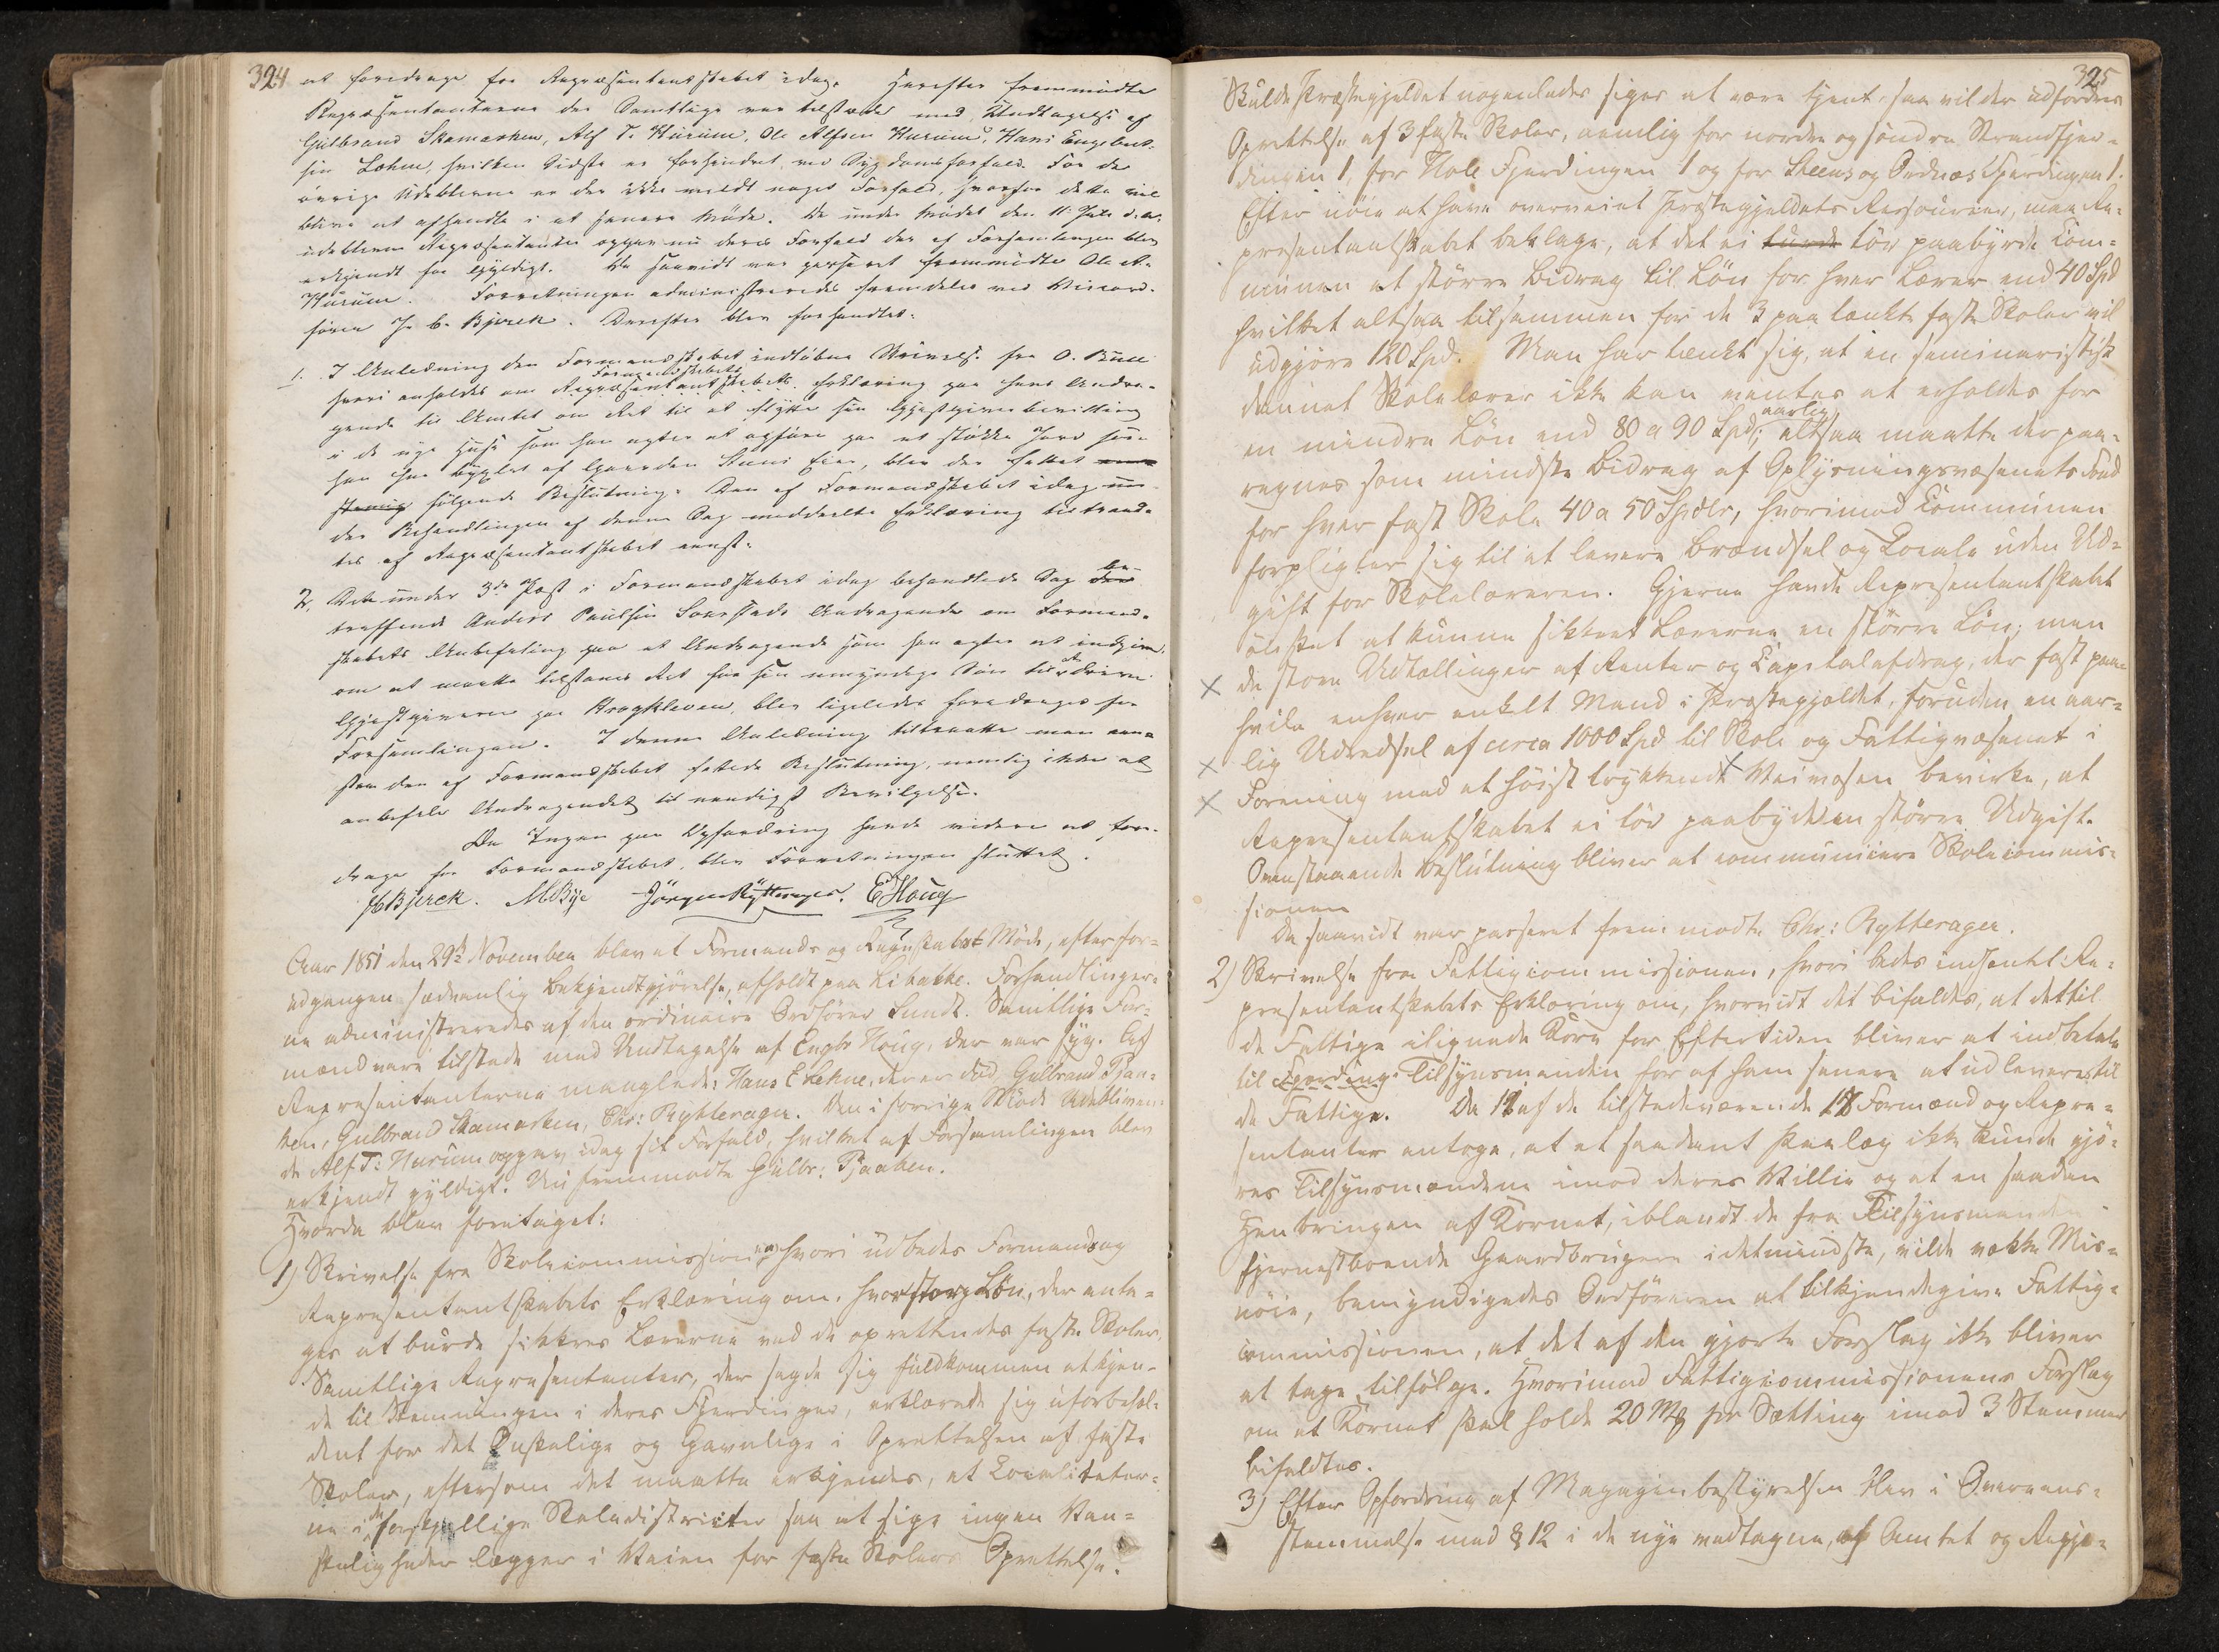 324
at foredrage for Repræsentantskabet idag. Herefter fremmødte
Repræsentanterne der Samtlige var tilstæde med Undtagelse af
Gulbrand Skamarken, Alf T. Hurum, Ole Alfsen Hurum, Hans Engebret-
sen Lehne, hvilken Sidste er forhindret ved Sygdomsforfald. For de
øvrige Udeblevne er der ikke meldt noget Forfald, hvorfor dette vil
blive at afhandle i et senere Møde. De under Mødet den 11 Juli d. a.
udeblevne Repræsentanter opgav nu deres Forfald der af Forsamlingen blev
erkjendt for gyldigt. Da saavidt var passeret fremmødte Ole A.
Hurum. Forretningen administreredes fremdeles ved Viceord-
fører J. C. Bjerck. Derefter blev forhandlet:
1. I Anledning den Formandskabet indløbne Skrivelse fra O. Bull
Formandskabets
hvori anholdes om Repræsentantskabets Erklæring paa hans Andra-
gende til Amtet om Ret til at flytte sin Gjestgiverbevilling
i de nye Huse som han agter at opføre paa et stykke Jord som
han har bygslet af Gaarden Stens Eier, blev der fattet
følgende Beslutning: Den af Formandskabet idag un-
der Behandlingen af denne Sag meddeelte Erklæring tiltraad-
tes af Repræsentantskabet eenst.
2. Den under 3de Post i Formandskabet idag behandlede Sag den be-
træffende Anders Paulsen Andragende om Formand-
skabets Anbefaling paa et Andragende som han agter at indgive
om at maatte tilstaaes Ret for sin umyndige Søn til at drive
Gjestgiveriet paa Krogkleven, blev ligeledes foredraget for
Forsamlingen. I denne Anledning tiltraadte man een-
stem. den af Formandskabet fattede Beslutning, nemlig ikke at
anbefale Andragendet til naadigst Bevilgelse.
Da Ingen paa Opfordring havde videre at fore-
drage for Formandskabet, blev Forretningen sluttet.
JCBjerck. MBye Jörgen Rytterager. EHoug
Aar 1851 den 29de November blev et Formands og Repskabet Møde, efter for-
udgangen sædvanlig Bekjendtgjörelse, afholdt paa Libakke. Forhandlinger-
ne administreredes af den ordinaire Ordförer Lundt. Samtlige For-
mænd vare tilstede med Undtagelse af Engbr Houg, der var syg. Af
Repræsentanterne manglede: Hans E Lehne, der er död, Gulbrand Tjaa-
ken, Gulbrand Skamarken, Chr: Rytterager. Den i forrige Möde udeblivne-
de Alf T: Hurum opgav idag sit Forfald, hvilket af Forsamlingen blev
erkjendt gyldigt. Nu fremmödte Gulbr: Tjaaken.
Hvorda blev foretaget:
1) Skrivelse fra Skolecommissionen, hvori udbedes Formands og
Repræsentantskabets Erklæring om, hvor storg Lön, der anta-
ges at burde sikkres Lærerne ved de oprettendes faste Skoler.
Samtlige Repræsentanter, der sagde sig fuldkommen at kjen-
de til Stemningen i deres Fjerdinger, erklærede sig uforbehol-
dent for det Önskelige og Gavnlige i Oprettelsen af faste
Skoler, eftersom det maatte erkjendes, at Localiteter-
ne i de forskjellige Skoledistricter saa at sige ingen Van-
skeligheder lægger i Veien for faste Skolers Oprettelse.
325
Skulde Præstegjeldet nogenledes siges at være tjent, saa vil der udfordres
Oprettelse af 3 faste Skoler, nemlig for nordre og söndre Strandfjer-
dingen 1, for Hole Fjerdingen 1 og for Steens og Ondnæs Fjerdingen 1.
Efter nöie at have overveiet Præstegjeldets Ressourcer, maa Re-
presentantskabet beklage, at det ei turde tör paabyrde Com-
munen et större Bidrag til Lön for hver Lærer end 40 Spd
hvilket altsaa tilsammen for de 3 paatænkte faste Skoler vil
udgjöre 120 Spd. Man har tænkt sig, at en seminaristisk
dannet Skolelærer ikke kan ventes at erholdes for
en mindre Lön end 80 a 90 Spd; aarlig altsaa maatte der paa-
regnes som mindste Bidrag af Oplysningsvæsenets Fond
for hver fast Skole 40 a 50 Spdlr, hvorimod Communen
forpligter sig til at levere Brændsel og Locale uden Ud-
gift for Skolelæreren. Gjerne havde Repræsentantskabet
önsket at kunne sikkret Lærerne en större Lön; men
× de store Udtællinger af Renter og Capitalafdrag, der fast paa-
hvile enhver enkelt Mand i Præstegjeldet, foruden en aar-
× lig Udredsel af circa 1000 Spd til Skole og Fattigvæsenet i
× Forening med et höist trykkende Veivæsen bevirke, at
Repræsentantskabet ei tör paabyde en större Udgift.
Ovenstaaende Beslutning bliver at communicere Skolecommis-
sionen
Da saavidt var passeret frem mödte Chr: Rytterager.
2) Skrivelse fra Fattigcommissionen, hvori bedes indhentet Re-
presentantskabets Erklæring om, hvorvidt det bifaldes, at det til
de Fattige ilignede Korn for Eftertiden bliver at indbetale
til Fjerdings Tilsynsmanden for af ham senere at udleveres til
de Fattige. De 12 af de tilstedeværende 18 Formænd og Repre-
sentanter antoge, at et saadant Paalæg ikke kunde gjö-
res Tilsynsmændene imod deres Villie og at en saadan
Henbringen af Kornet, iblandt de fra Tilsynsmanden
fjernestboende Gaardbrugere idetmindste, vilde vække Mis-
nöie, bemyndigedes Ordföreren at tilkjendegive Fattig-
commissionen, at det af den gjorte Forslag ikke bliver
at tage tilfölge. Hvorimod Fattigcommissionens Forslag
om at Kornet skal holde 20 Mk pr Sætting imod 3 Stemmer
bifaldtes.
3) Efter Opfordring af Magazinbestyrelsen blev i Overeens-
stemmelse med § 12 i de nye vedtagne, af Amtet og Repre-